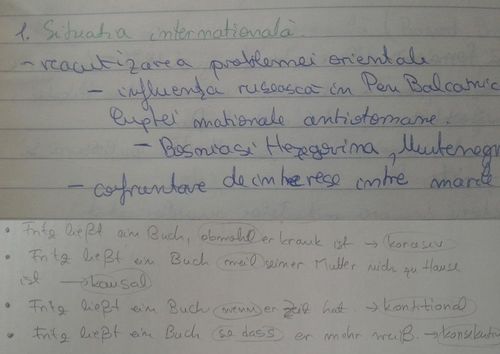 1. Situația internațională.
- reacutizarea problemei orientale
- influența rusească în Pen Balcanic
luptei naționale antiotomane.
- Bosnia și Hezegovina, Muntenegr
- cofruntare de interese intre marile
• Fritz ließt ein Buch, obwohl er krank ist →
• Fritz ließt ein Buch weil seiner Mutter nich zu Hause
ist → kausal
• Fritz ließt ein Buch wenn er Zeit hat. → kontitional
• Fritz ließt ein Buch so dass er mehr weiß. → konsekutiv